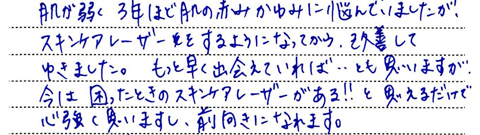 肌が弱く3年ほど肌の赤みかゆみに悩んでいましたが、
スキンケアレーザーをするようになってから、改善して
ゆきました。もっと早く出会えていれば‥とも思いますが、
今は困ったときのスキンケアレーザーがある!!と思えるだけで
心強く思いますし、前向きになれます。